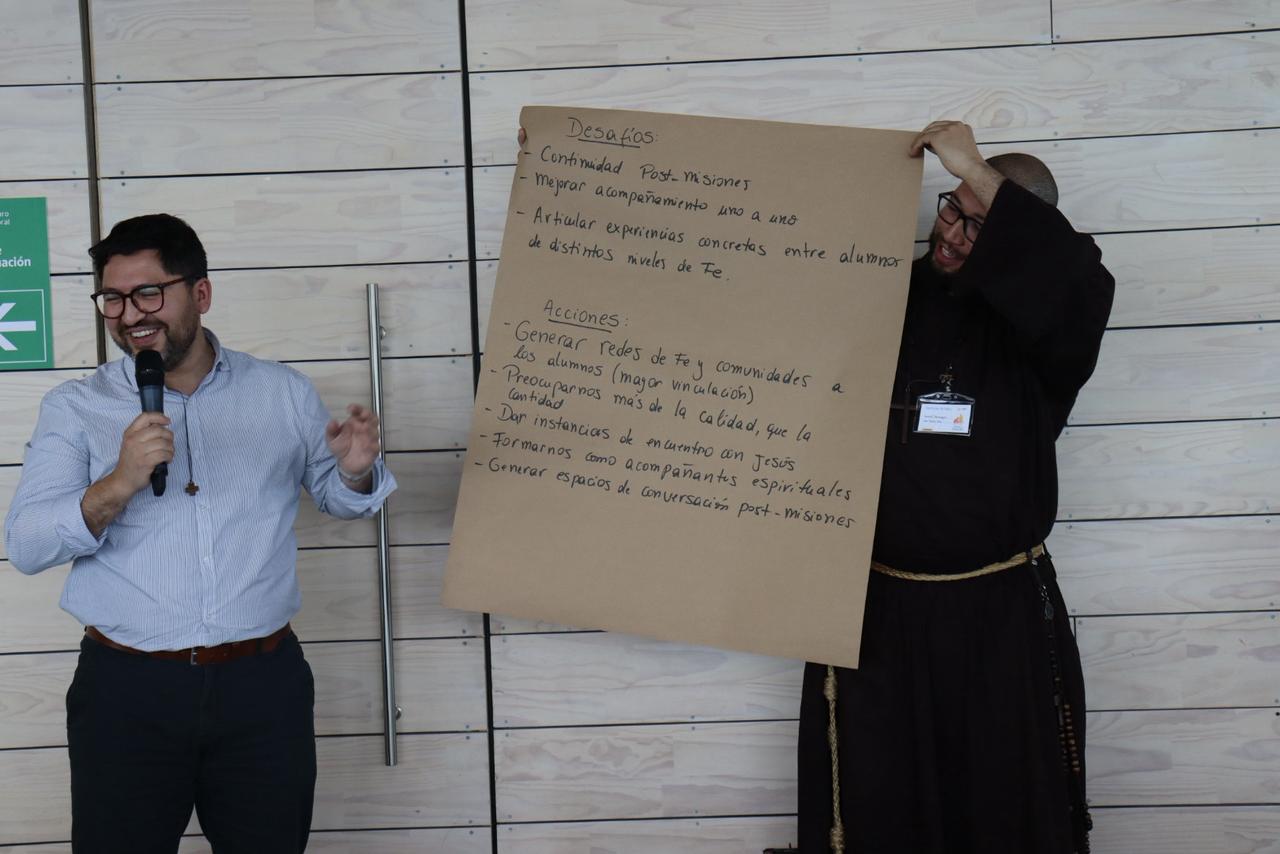 Desafíos:
- Continuidad Post-Misiones
- Mejorar acompañamiento uno a uno
- Articular experiencias concretas entre alumnos
de distintos niveles de Fe.
Acciones:
- Generar redes de Fe y comunidades a
los alumnos (mayor vinculación)
- Preocuparnos más de la calidad, que la
cantidad
- Dar instancias de encuentro con Jesús
- Formarnos como acompañantes espirituales
- Generar espacios de conversación post-misiones